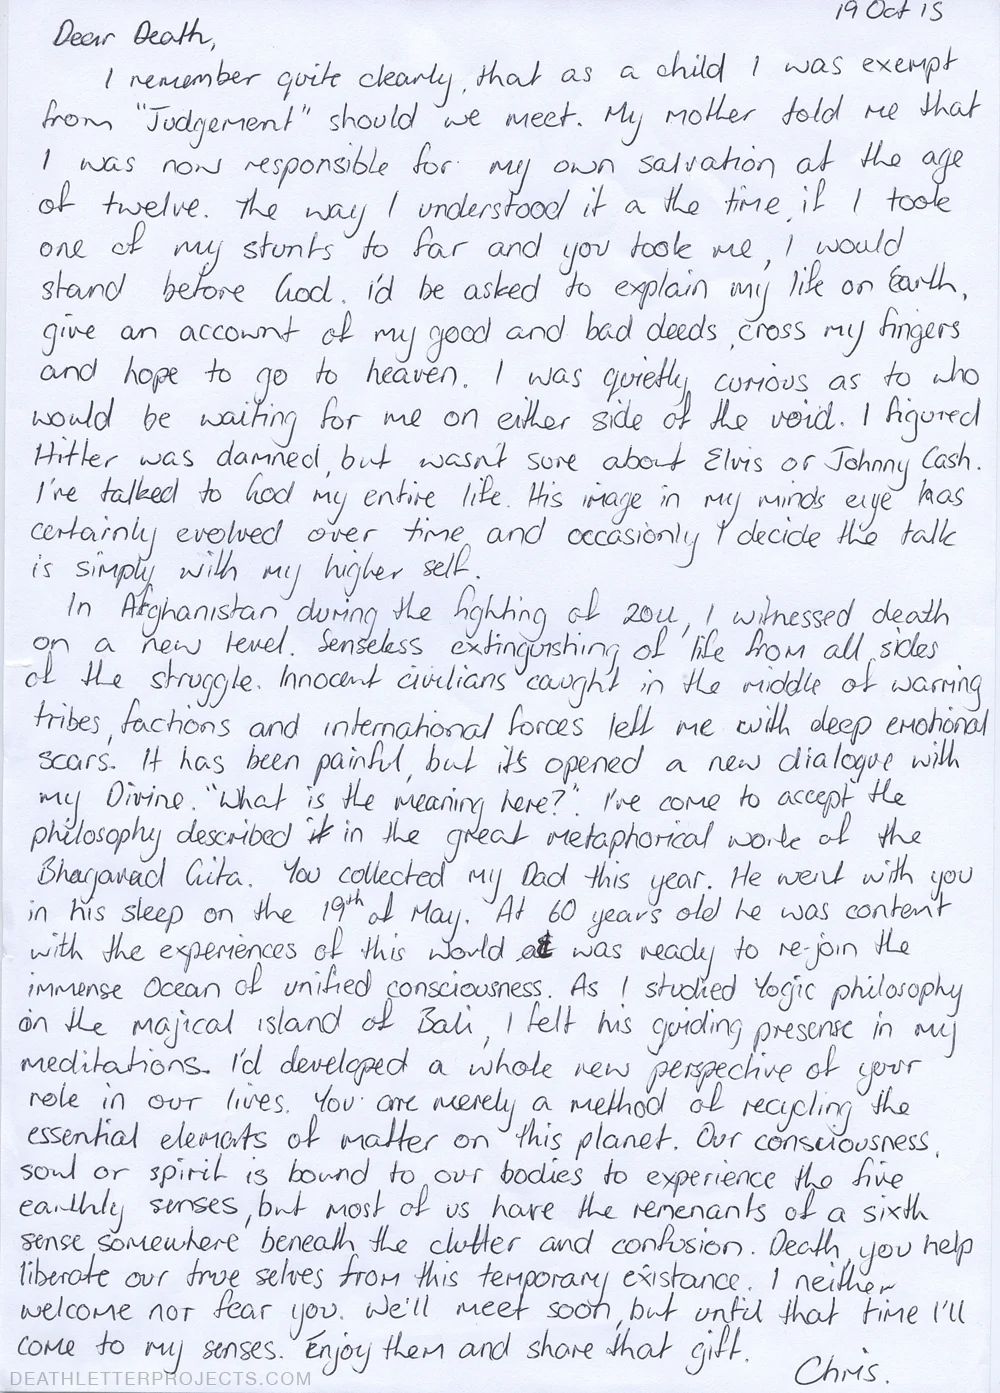 19 Oct 15
Dear Death,
I remember quite clearly, that as a child I was exempt
from "Judgement" should we meet. My mother told me that
I was now responsible for my own salvation at the age
of twelve. The way I understood it a the time, if I took
one of my stunts to far and you took me, I would
stand before God. i'd be asked to explain my life on Earth,
give an account of my good and bad deeds, cross my fingers
and hope to go to heaven. I was quietly curious as to who
would be waiting for me on either side of the void. I figured
Hitler was damned, but wasn't sure about Elvis or Johnny Cash.
I've talked to God my entire life. His image in my minds eye has
certainly evolved over time, and occasionly I decide the talk
is simply with my higher self.
In Afghanistan during the fighting of 2011, I witnessed death
on a new level. Senseless extinguishing of life from all sides
of the struggle. Innocent civilians caught in the middle of warring
tribes, factions and international forces left me with deep emotional
scars. It has been painful, but it's opened a new dialogue with
my Divine. "What is the meaning here?". I've come to accept the
philosophy described in the great metaphorical work of the
Bhagavad Gita. You collected my Dad this year. He went with you
in his sleep on the 19th of May. At 60 years old he was content
with the experiences of this world was ready to re-join the
immense Ocean of unified consciousness. As I studied Yogic philosophy
on the majical island of Bali, I felt his guiding presense in my
meditations. I'd developed a whole new perspective of your
role in our lives. You are merely a method of recycling the
essential elements of matter on this planet. Our consciousness,
soul or spirit is bound to our bodies to experience the five
earthly senses, but most of us have the remenants of a sixth
sense somewhere beneath the clutter and confusion. Death, you help
liberate our true selves from this temporary existance. I neither
welcome nor fear you. We'll meet soon, but until that time I'll
come to my senses. Enjoy them and share that gift.
Chris.
DEATHLETTERPROJECTS.COM